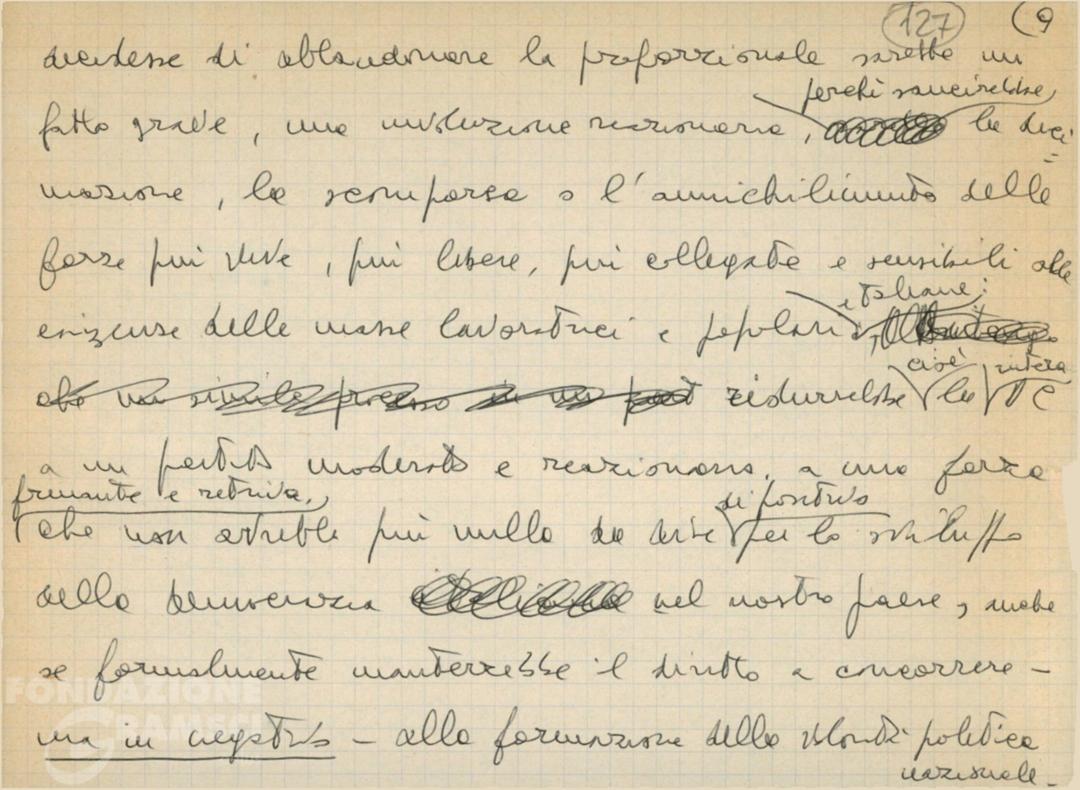 127 (9
decidesse di abbandonare la proporzionale sarebbe un
perché sancirebbe
fatto grave, una involuzione reazionaria, la deci=
mazione, la scomparsa o l'annichilimento delle
forze più vive, più libere, più collegate e sensibili alle
italiane:
esigenze delle masse lavoratrici e popolari
cioè intera
che un simile processo ridurrebbe la DC
a un partito moderato e reazionario, a una forza
frenante e retriva,
che non avrebbe più nulla da dire per lo sviluppo
di positivo
della democrazia nel nostro paese, anche
se formalmente manterrebbe il diritto a concorrere –
ma in negativo – alla formazione della volontà politica
nazionale.
FONDAZIONE
GRAMSCI